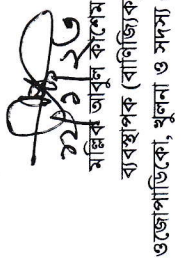 মল্লিক আবুল কাশেম
ব্যবস্থাপক (বাণিজ্যিক
ওজোপাডিকো, খুলনা ও সদস্য